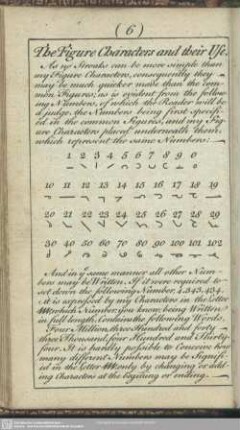 ( 6 )
The Figure Characters and their Use.
As no Stroaks can be more simple than
my Figure Characters, consequently they
may be much quicker made than the com=
mon Figures; as is evident from the follow
ing Numbers, of which the Reader will be
a judge, the Numbers being first specifi=
ed in the common Figures, and my Fig
ure Characters placed underneath them,
which represent the same Numbers:
1 2 3 4 5 6 7 8 9 0
10 11 12 13 14 15 16 17 18 19
20 21 22 23 24 25 26 27 28 29
30 40 50 60 70 80 90 100 101 102
And in ye same manner all other Num=
bers may be Written. If it were required to
set down the following Number
It is expressed by my Characters in the Letter
which Number, you know, being Written
in full length, Contains the following Words.
Four Million, three Hundred and forty
three Thousand, four Hundred and Thirty
four. It is hardly possible to Conceive how
many different Numbers may be Signifi=
ed in the Letter only by changing or add
ing Characters at the begining or ending.